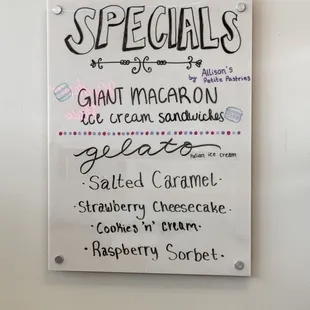 SPECIALS
by Allison's
Petite Pastries
GIANT MACARON
ice cream sandwiches
gelato Italian ice cream
· Salted Caramel ·
· Strawberry Cheesecake ·
· Cookies 'n' Cream ·
· Raspberry Sorbet ·